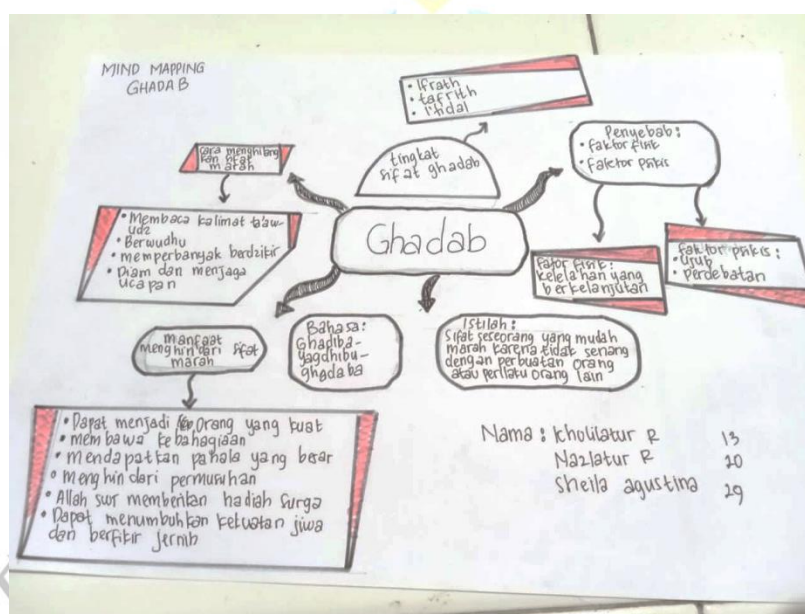 MIND MAPPING
GHADAB
• Ifrath
• tafrith
• I'tidal
tingkat
sifat ghadab
Penyebab:
• faktor fisik
• faktor psikis
cara menghilang
kan sifat
marah
• Membaca kalimat ta'aw
udz
• Berwudhu
• memperbanyak berdzikir
• Diam dan menjaga
ucapan
Ghadab
fator fisik:
kelelahan yang
berkelanjutan
faktor psikis:
• Ujub
• Perdebatan
manfaat
menghindari sifat
marah
Bahasa:
Ghadiba-
yagdhibu-
ghadaba
Istilah:
Sifat seseorang yang mudah
marah karena tidak senang
dengan perbuatan orang
atau perilaku orang lain
• Dapat menjadi orang yang kuat
• membawa kebahagiaan
• mendapatkan pahala yang besar
• Menghindari permusuhan
• Allah swr memberikan hadiah surga
• Dapat menumbuhkan kekuatan jiwa
dan berfikir jernih
Nama: Kholilatur R 13
Nazlatur R 20
Sheila agustina 29